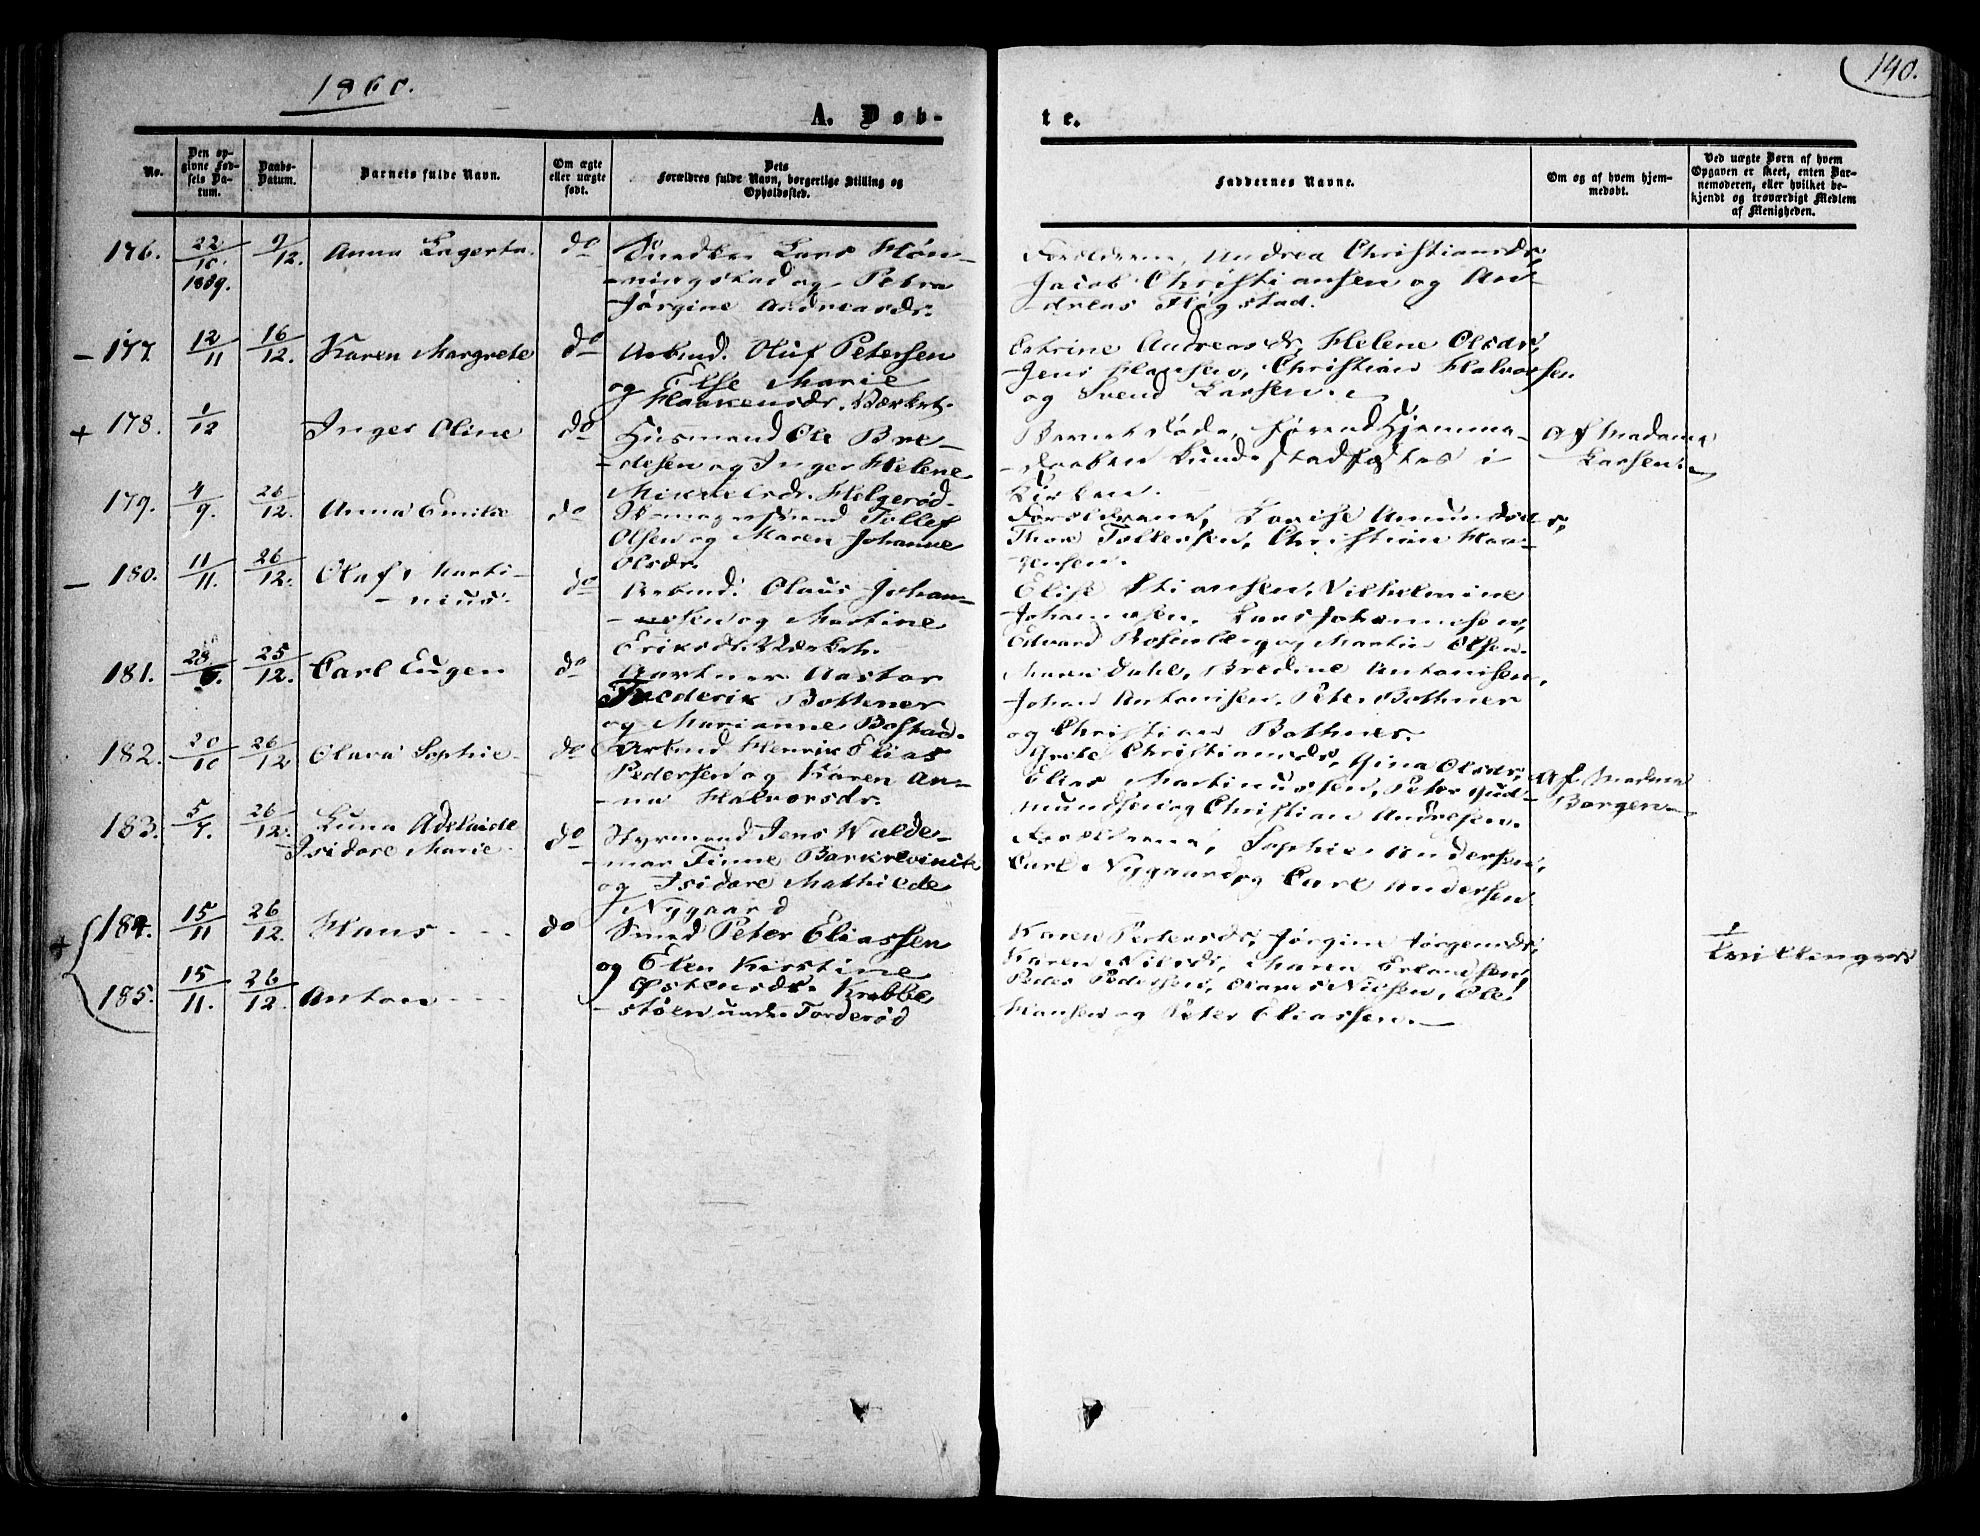 1860.
140.
A. Døb-
te.
No.
Den op-
givne Fød-
sels Da-
tum.
Daabs-
Datum.
Barnets fulde Navn.
Om ægte
eller uægte
født.
Dets
Forældres fulde Navn, borgerlige Stilling og
Opholdssted.
Faddernes Navne.
Om og af hvem hjem-
medøbt.
Ved uægte Børn af hvem
Opgaven er skeet, enten Bar-
nemoderen, eller hvilket be-
kjendt og troværdigt Medlem
af Menigheden.
176. 22/10 1859. 9/12. Anna Lagerta. do Lars Høn-
-ningstad og Petra
Jørgine Andreasdr.
Forældrene, Andrea Christiansdr,
Jacob Christiansen og An-
dreas Fløgstad.
- 177. 12/11 16/12. Karen Margrete do Arbmd. Oluf Petersen
og Else Marie
Haakensdr. Værket.
Andreasdr, Helene Olsdr,
Jens Hansen, Christian Halvorsen
og Svend Larsen.
+ 178. 1/12 Inger Oline do Husmand Ole Bre-
-desen og Inger Helene
Mikkelsdr. Helgerød.
Barnet døde, førend Hjemme-
-daaben kunde stadfæstes i
Kirken.
Af Madame
Larsen.
179. 4/9. 26/12. Anna Emilie do Tollef
Olsen og Maren Johanne
Olsdr.
Forældrene, Lovise Amundsdr,
Thor Tollefsen, Christian Haa-
gensen.
- 180. 11/11. 26/12. Olaf Marti-
-nius. do Arbmd. Olaus Johan-
-nesen og Martine
Eriksdr. Værket.
Elise Stiansen, Vilhelmine
Johannesen, Lars Johannesen,
Edvard Rosenberg og Martin Olsen.
181. 28/6. 25/12. Carl Eugen do Gartner Aastar
Frederik Bothner
og Marianne Bostad.
Maren Dahl, Bredine Antonisen,
Johan Antonisen, Peter Bothner
og Christian Bothner.
182. 20/10 26/12 Olava Sophie do Arbmd Henrik Elias
Pedersen og Karen An-
-na Halvorsdr.
Grete Christiansdr, Gina Olsdr,
Elias Martinussen, Peter Gud-
mundsen og Christian Andresen.
Af Madme
Borgen
183. 5/7. 26/12. Luna Adelaide
Isidore Marie do Styrmand Jens Walde-
-mar Finne Barkrevink
og Isidore Mathilde
Nygaard
Forældrene, Sophie Andersen,
Carl Nygaard og Carl Andersen
+ 184. 15/11 26/12. Hans do Smed Peter Eliassen
og Elen Kirstine
Østensdr. Krabbe
-støen under Torderød
Karen Pedersdr, Jørgine Jørgensdr,
Karen Nilsdr, Maren Erlandsen,
Peder Pedersen, Nilsen, Ole
Hansen og Peter Eliassen.
Tvillinger
185. 15/11. 26/12. Anton